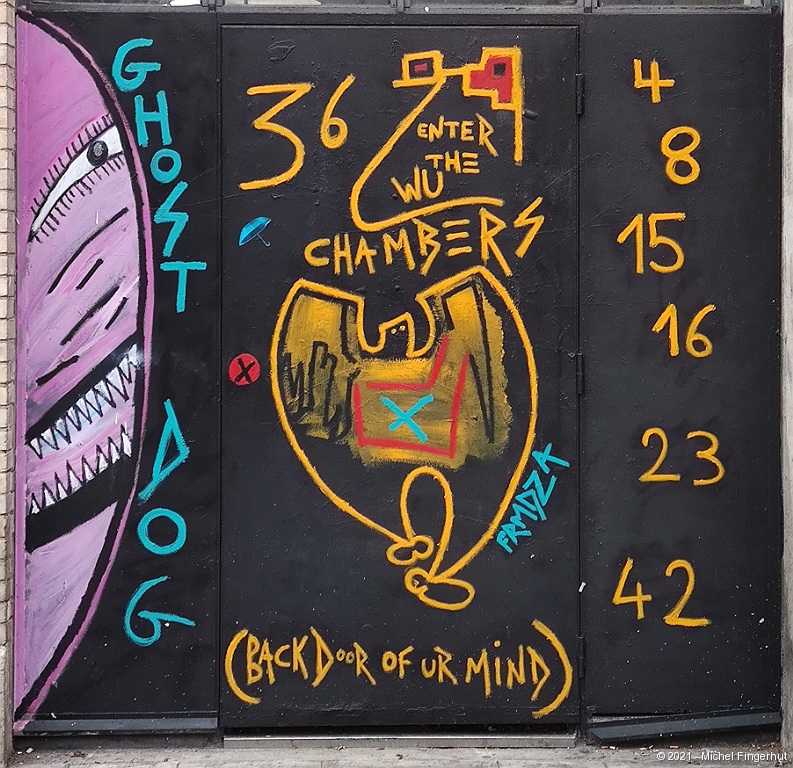 GHOST DOG
36
ENTER
THE
WU
CHAMBERS
X
X
FRMDZA
(BACK DOOR OF UR MIND)
4
8
15
16
23
42
© 2021 - Michel Fingerhut